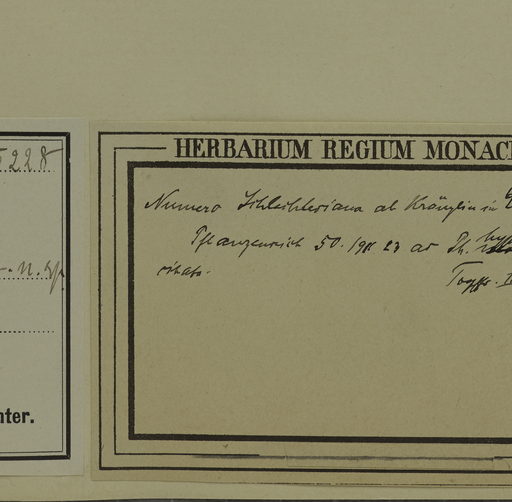 5228
n. sp.
nter.
HERBARIUM REGIUM MONAC
Numero Schlechteriana ab Kränzlin in
Pflanzenreich 50. 23 ad Th.
citato.